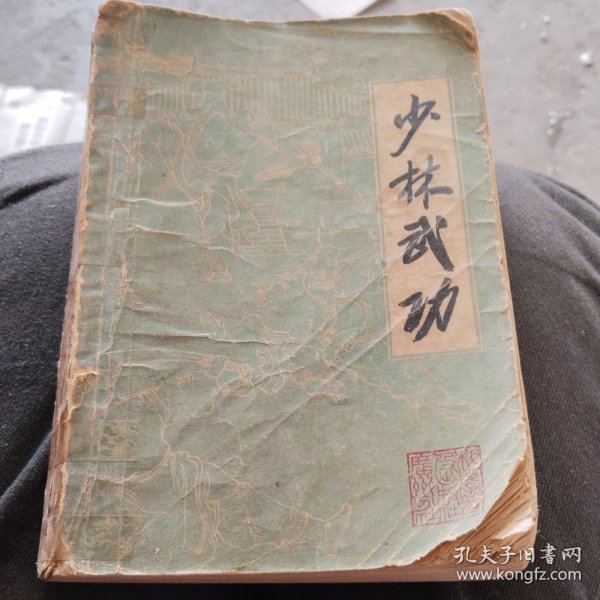 少林武功
孔夫子旧書网
www.kongfz.com